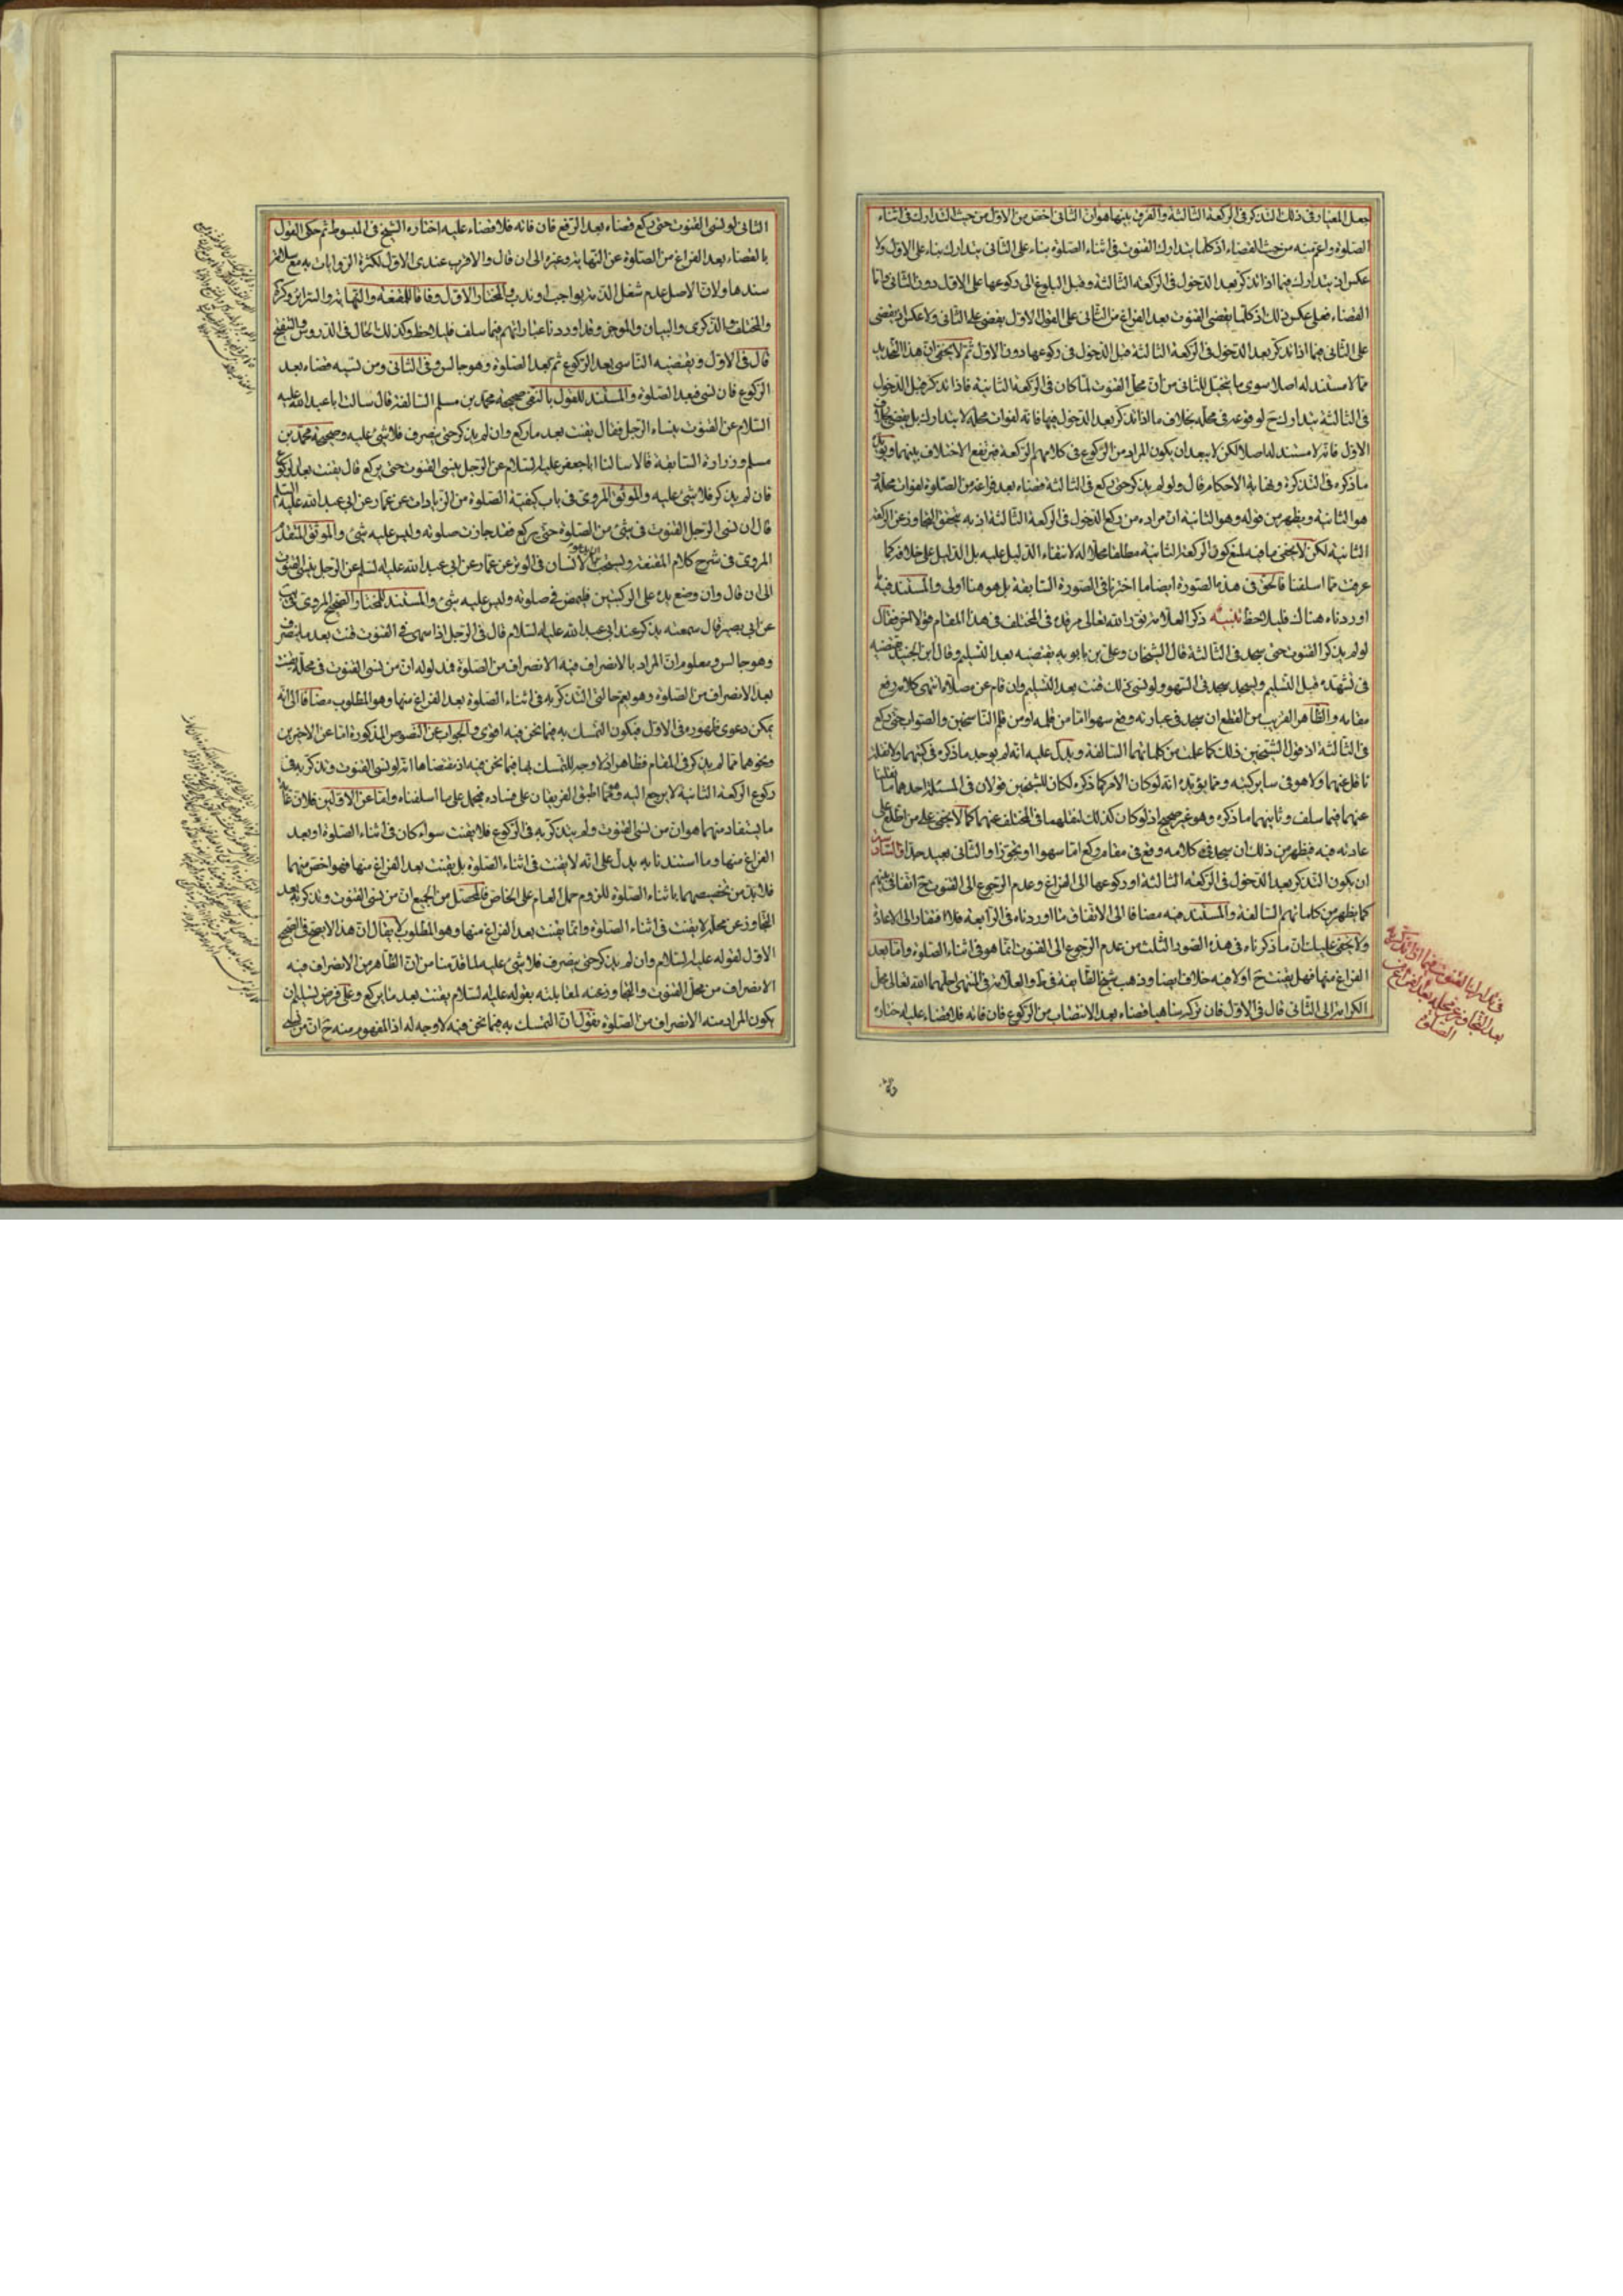 جعل المعيار فى ذلك التذكر فى الركعة الثالثة والفرق بينهما هو ان الثانى اخص من الاول من حيث التدارك فى اثناء
الصلوة واعم منه من حيث القضاء اذ كلما يتدارك القنوت فى اثناء الصلوة بناء على الثانى يتدارك بناء على الاول ولا
عكس اذ يتدارك فيما اذا تذكر بعد الدخول فى الركعة الثالثة وقبل البلوغ الى ركوعها على الاول دون الثانى واما
القضاء فعلى عكس ذلك اذ كلما يقضى القنوت بعد الفراغ من الثانى على القول الاول يقضى على الثانى ولا عكس اذ يقضى
على الثانى فيما اذا تذكر بعد الدخول فى الركعة الثالثة قبل الدخول فى ركوعها دون الاول ثم لا يخفى ان هذا التحديد
مما لا مستند له اصلا سوى ما يتخيل للثانى من ان محل القنوت لما كان فى الركعة الثانية فاذا تذكر قبل الدخول
فى الثالثة يتدارك ح لوقوعه فى محله بخلاف ما اذا تذكر بعد الدخول فيها فانه لفوات محله لا يتدارك بل يقضى بخلاف
الاول فانه لا مستند له اصلا لكن لا يبعد ان يكون المراد من الركوع فى كلامهم الركعة فيرتفع الاختلاف بينهما ويؤيده
ما ذكره فى التذكرة ونهاية الاحكام قال ولو لم يذكر حتى ركع فى الثالثة قضاه بعد فراغه من الصلوة لفوات محله و
هو الثانية ويظهر من قوله وهو الثانية ان مراده من ركع الدخول فى الركعة الثالثة اذ به يتحقق التجاوز عن الركعة
الثانية لكن لا يخفى ما فيه لمنع كون الركعة الثانية مطلقا محلا له لانتفاء الدليل عليه بل الدليل على خلافه كما
عرفت مما اسلفنا فالحق فى هذه الصورة ايضا ما اخترنا فى الصورة السابقة بل هو هنا اولى والمستند فيه ما
اوردناه هناك فليلاحظ تنبيه ذكر العلامة نور الله تعالى مرقده فى المختلف فى هذا المقام قولا اخر فقال
لو لم يذكر القنوت حتى سجد فى الثالثة قال الشيخان وعلى بن بابويه يقضيه بعد التسليم وقال ابن الجنيد يقضيه
فى تشهده قبل التسليم ويسجد سجدتى السهو ولو نسى ذلك قنت بعد التسليم وان قام عن صلاه انتهى كلامه رفع
مقامه والظاهر القريب من القطع ان سجد فى عبارته وقع سهوا اما من قلمه او من قلم الناسخين والصواب حتى ركع
فى الثالثة اذ قول الشيخين ذلك كما علمت من كلماتهما السالفة ويدل عليه انه لم يوجد ما ذكره فى كتبهما ولا نقله
ناقل عنهما ولا هو فى ساير كتبه ومما يؤيده انه لو كان الامر كما ذكره لكان للشيخين قولان فى المسئلة احدهما ما نقلنا
عنهما فيما سلف وثانيهما ما ذكره وهو غير صحيح اذ لو كان كذلك لنقلهما فى المختلف عنهما كما لا يخفى على من اطلع على
عادته فيه فيظهر من ذلك ان سجد فى كلامه وقع فى مقام ركع اما سهوا او تجوزا والثانى بعيد جدا والسادس
ان يكون التذكر بعد الدخول فى الركعة الثالثة او ركوعها الى الفراغ وعدم الرجوع الى القنوت ح اتفاقى بينهم
كما يظهر من كلماتهم السالفة والمستند فيه مضافا الى الاتفاق ما اوردناه فى الرابعة فلا افتقار الى الاعادة
ولا يخفى عليك ان ما ذكرناه فى هذه الصور الثلث من عدم الرجوع الى القنوت انما هو فى اثناء الصلوة واما بعد
الفراغ منها فهل يقنت ح او لا فيه خلاف ايضا وذهب شيخ الطائفة فى ط والعلامة فى المنتهى احلهما الله تعالى محل
الكرامة الى الثانى قال فى الاول فان تركه ساهيا قضاه بعد الانتصاب من الركوع فان فاته فلا قضاء عليه اختاره
فى تدارك القنوت فيما اذا تذكر به
بعد التجاوز عن محله بعد الفراغ من
الصلوة
الثانى لو نسى القنوت حتى ركع قضاه بعد الرفع فان فاته فلا قضاء عليه اختاره الشيخ فى المبسوط ثم حكى القول
بالقضاء بعد الفراغ من الصلوة عن النهاية وغيره الى ان قال والاقرب عندى الاول لكثرة الروايات به مع سلامة
سندها ولان الاصل عدم شغل الذمة بواجب او ندب والمختار الاول وفاقا للمقنعة والنهاية والسرائر وكره
والمختلف والذكرى والبيان والموجز وقد اوردنا عباراتهم فيما سلف فليلاحظ وكذلك الحال فى الدروس والتنقيح
قال فى الاول ويقضيه الناسى بعد الركوع ثم بعد الصلوة وهو جالس وفى الثانى ومن نسيه قضاه بعد
الركوع فان نسى فبعد الصلوة والمستند للقول بالنفى صحيحة محمد بن مسلم السالفة قال سالت ابا عبد الله عليه
السلام عن القنوت ينساه الرجل فقال يقنت بعد ما ركع وان لم يذكر حتى ينصرف فلا شئ عليه وصحيحة محمد بن
مسلم وزرارة السابقة قالا سالنا ابا جعفر عليه السلام عن الرجل ينسى القنوت حتى يركع قال يقنت بعد الركوع
فان لم يذكر فلا شئ عليه والموثق المروى فى باب كيفية الصلوة من الزيادات عن عمار عن ابى عبد الله عليه السلم
قال ان نسى الرجل القنوت فى شئ من الصلوة حتى يركع فقد جازت صلوته وليس عليه شئ والموثق المتقدم
المروى فى شرح كلام المقنعة ويستحب ان يقنت الانسان فى الوتر عن عمار عن ابى عبد الله عليه السلم عن الرجل ينسى القنوت
الى ان قال وان وضع يده على الركبتين فليمض فى صلوته وليس عليه شئ والمستند للمختار الصحيح المروى فى يب
عن ابى بصير قال سمعته يذكر عند ابى عبد الله عليه السلام قال فى الرجل اذا سهى فى القنوت قنت بعد ما ينصرف
وهو جالس ومعلوم ان المراد بالانصراف فيه الانصراف من الصلوة فمدلوله ان من نسى القنوت فى محله يقنت
بعد الانصراف من الصلوة وهو يعم حالتى التذكر به فى اثناء الصلوة بعد الفراغ منها وهو المطلوب مضافا الى انه
يمكن دعوى ظهوره فى الاول فيكون التمسك به فيما نحن فيه اقوى والجواب عن النصوص المذكورة اما عن الاخيرين
ونحوهما مما لم يذكر فى المقام فظاهر اذ لا وجه للتمسك بها فيما نحن فيه اذ مقتضاها انه لو نسى القنوت وتذكر به فى
ركوع الركعة الثانية لا يرجع اليه ومما اطبق الفريقان على فساده فيحمل على ما اسلفناه واما عن الاولين فلان غاية
ما يستفاد منهما هو ان من نسى القنوت ولم يتذكر به فى الركوع فلا يقنت سواء كان فى اثناء الصلوة او بعد
الفراغ منها وما استندنا به يدل على انه لا يقنت فى اثناء الصلوة بل يقنت بعد الفراغ منها فهو اخص منهما
فلا بد من تخصيصهما باثناء الصلوة للزوم حمل العام على الخاص فالمحصل من الجميع ان من نسى القنوت وتذكر به بعد
التجاوز عن محله لا يقنت فى اثناء الصلوة وانما يقنت بعد الفراغ منها وهو المطلوب لا يقال ان هذا لا يصح فى الصحيح
الاول لقوله عليه السلام وان لم يذكر حتى ينصرف فلا شئ عليه لما قدمنا من ان الظاهر من الانصراف فيه
الانصراف من محل القنوت والتجاوز عنه لمقابلته بقوله عليه السلام يقنت بعد ما يركع وعلى فرض تسليم ان
يكون المراد منه الانصراف من الصلوة نقول ان التمسك به فيما نحن فيه لا وجه له اذ المفهوم منه ح ان من نسى